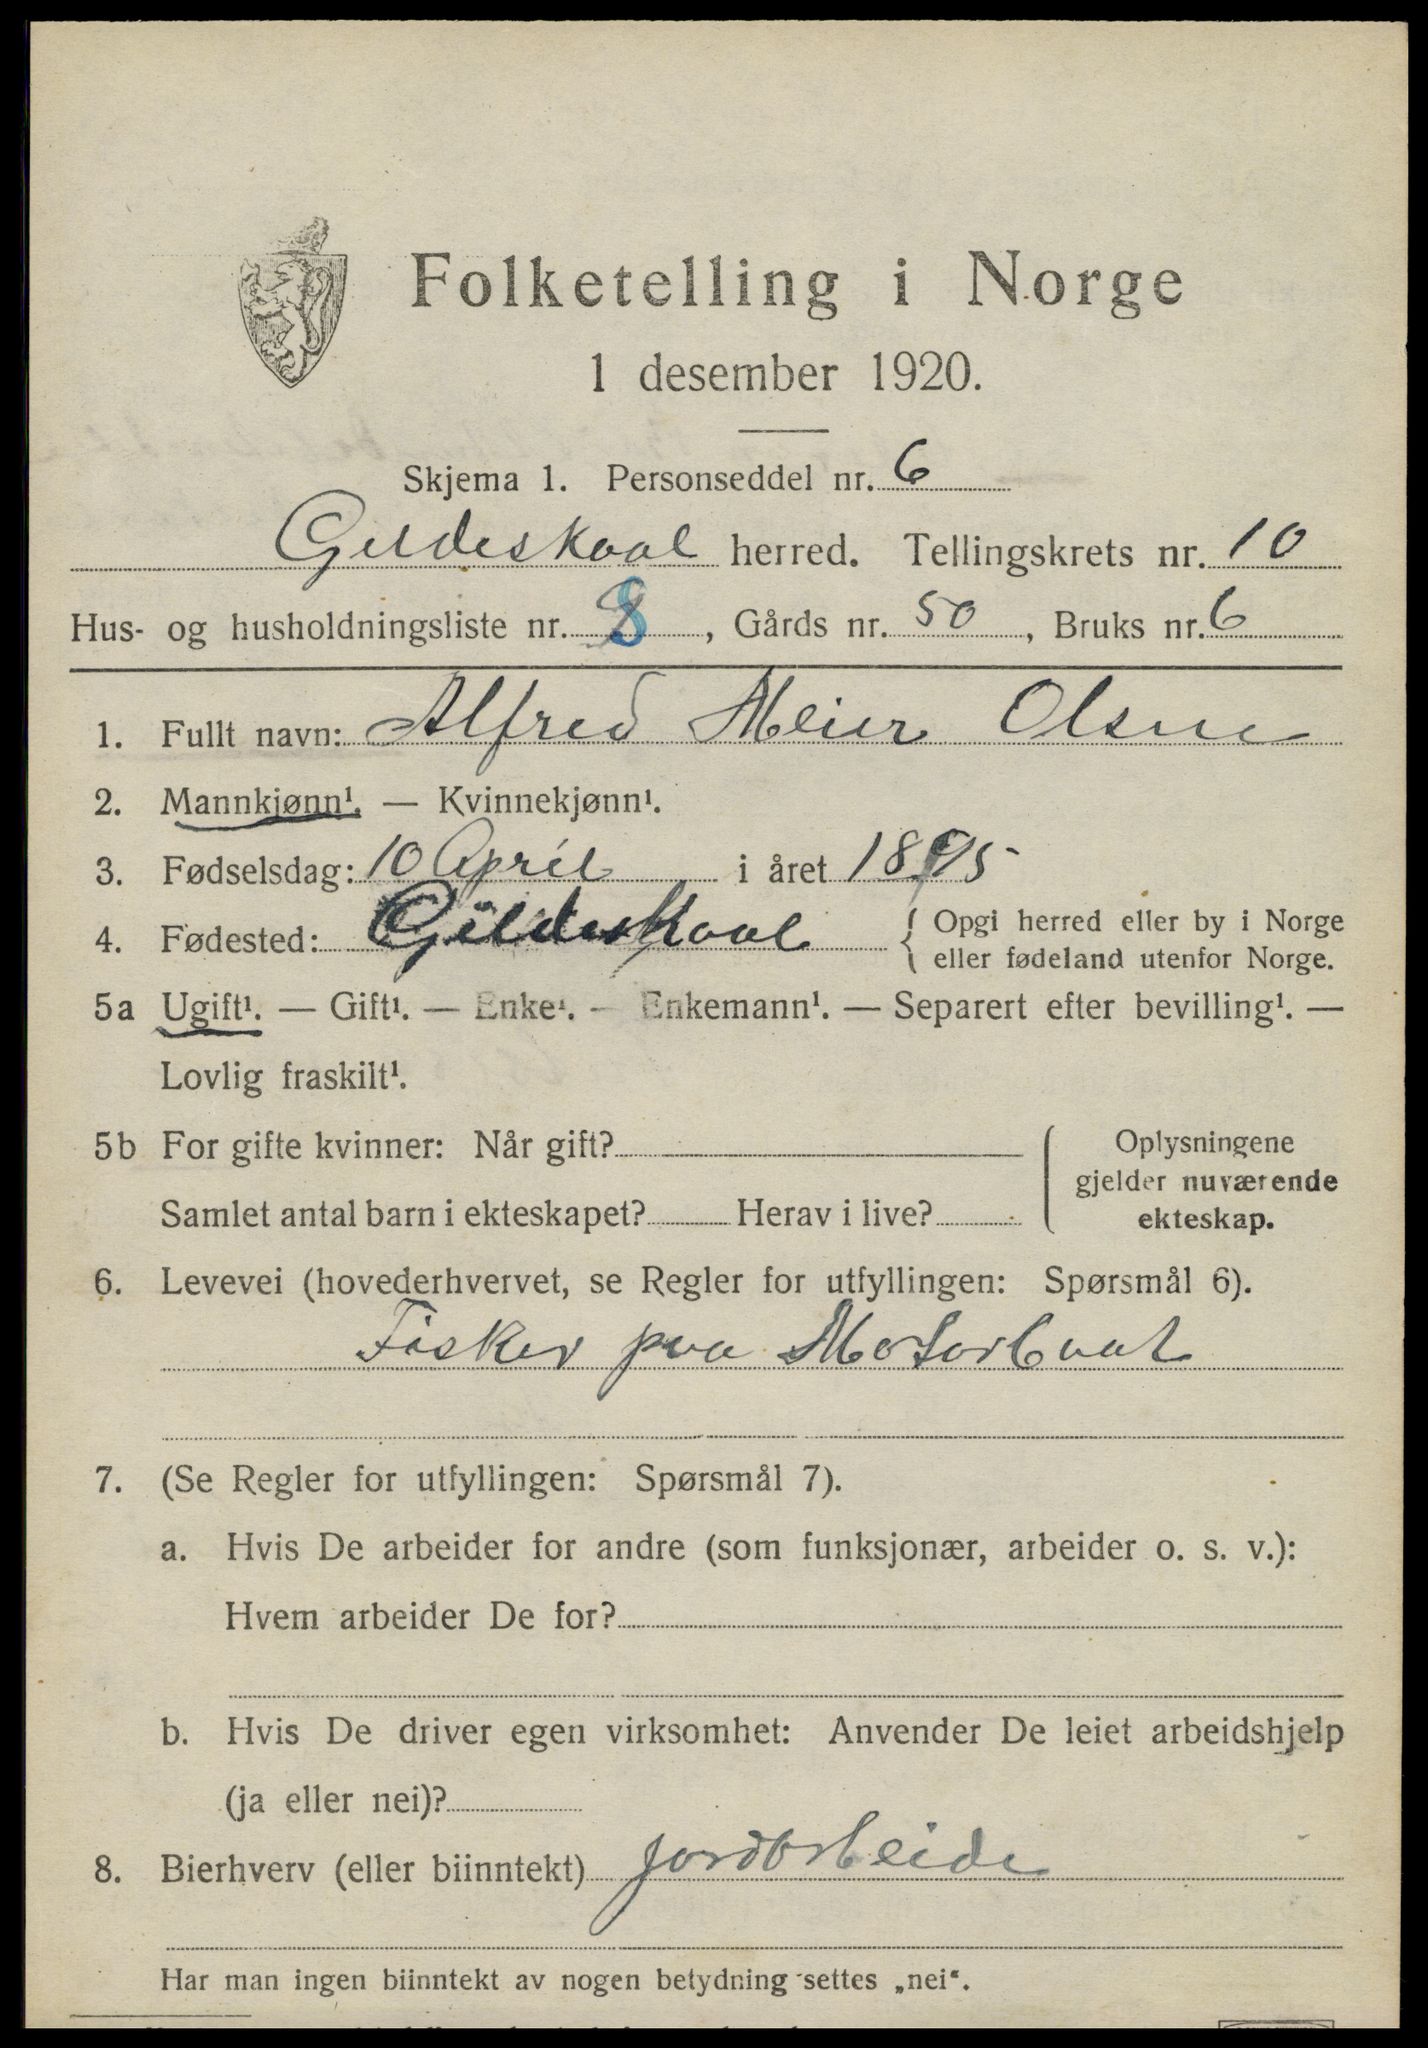 Folketelling i Norge
1 desember 1920.
Skjema 1. Personseddel nr. 6
Gildeskaal herred. Tellingskrets nr. 10
Hus- og husholdningsliste nr. 8, Gårds nr. 50, Bruks nr. 6
1. Fullt navn: Alfred Meier Olsen
2. Mannkjønn¹. — Kvinnekjønn¹.
3. Fødselsdag: 10 April i året 1895
4. Fødested: Gildeskaal { Opgi herred eller by i Norge
eller fødeland utenfor Norge.
5a Ugift¹. — Gift¹. — Enke¹. — Enkemann¹. — Separert efter bevilling¹. —
Lovlig fraskilt¹.
5b For gifte kvinner: Når gift? { Oplysningene
gjelder nuværende
Samlet antal barn i ekteskapet? Herav i live? ekteskap.
6. Levevei (hovederhvervet, se Regler for utfyllingen: Spørsmål 6).
Fisker paa Motorbaat
7. (Se Regler for utfyllingen: Spørsmål 7).
a. Hvis De arbeider for andre (som funksjonær, arbeider o. s. v.):
Hvem arbeider De for?
b. Hvis De driver egen virksomhet: Anvender De leiet arbeidshjelp
(ja eller nei)?
8. Bierhverv (eller biinntekt) jordarbeide
Har man ingen biinntekt av nogen betydning settes „nei“.